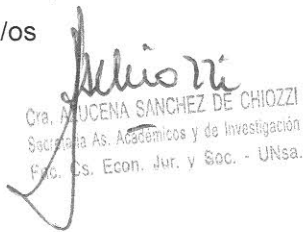 /os
Cra. AZUCENA SANCHEZ DE CHIOZZI
Secretaria As. Académicos y de Investigación
Fac. Cs. Econ. Jur. y Soc. - UNsa.